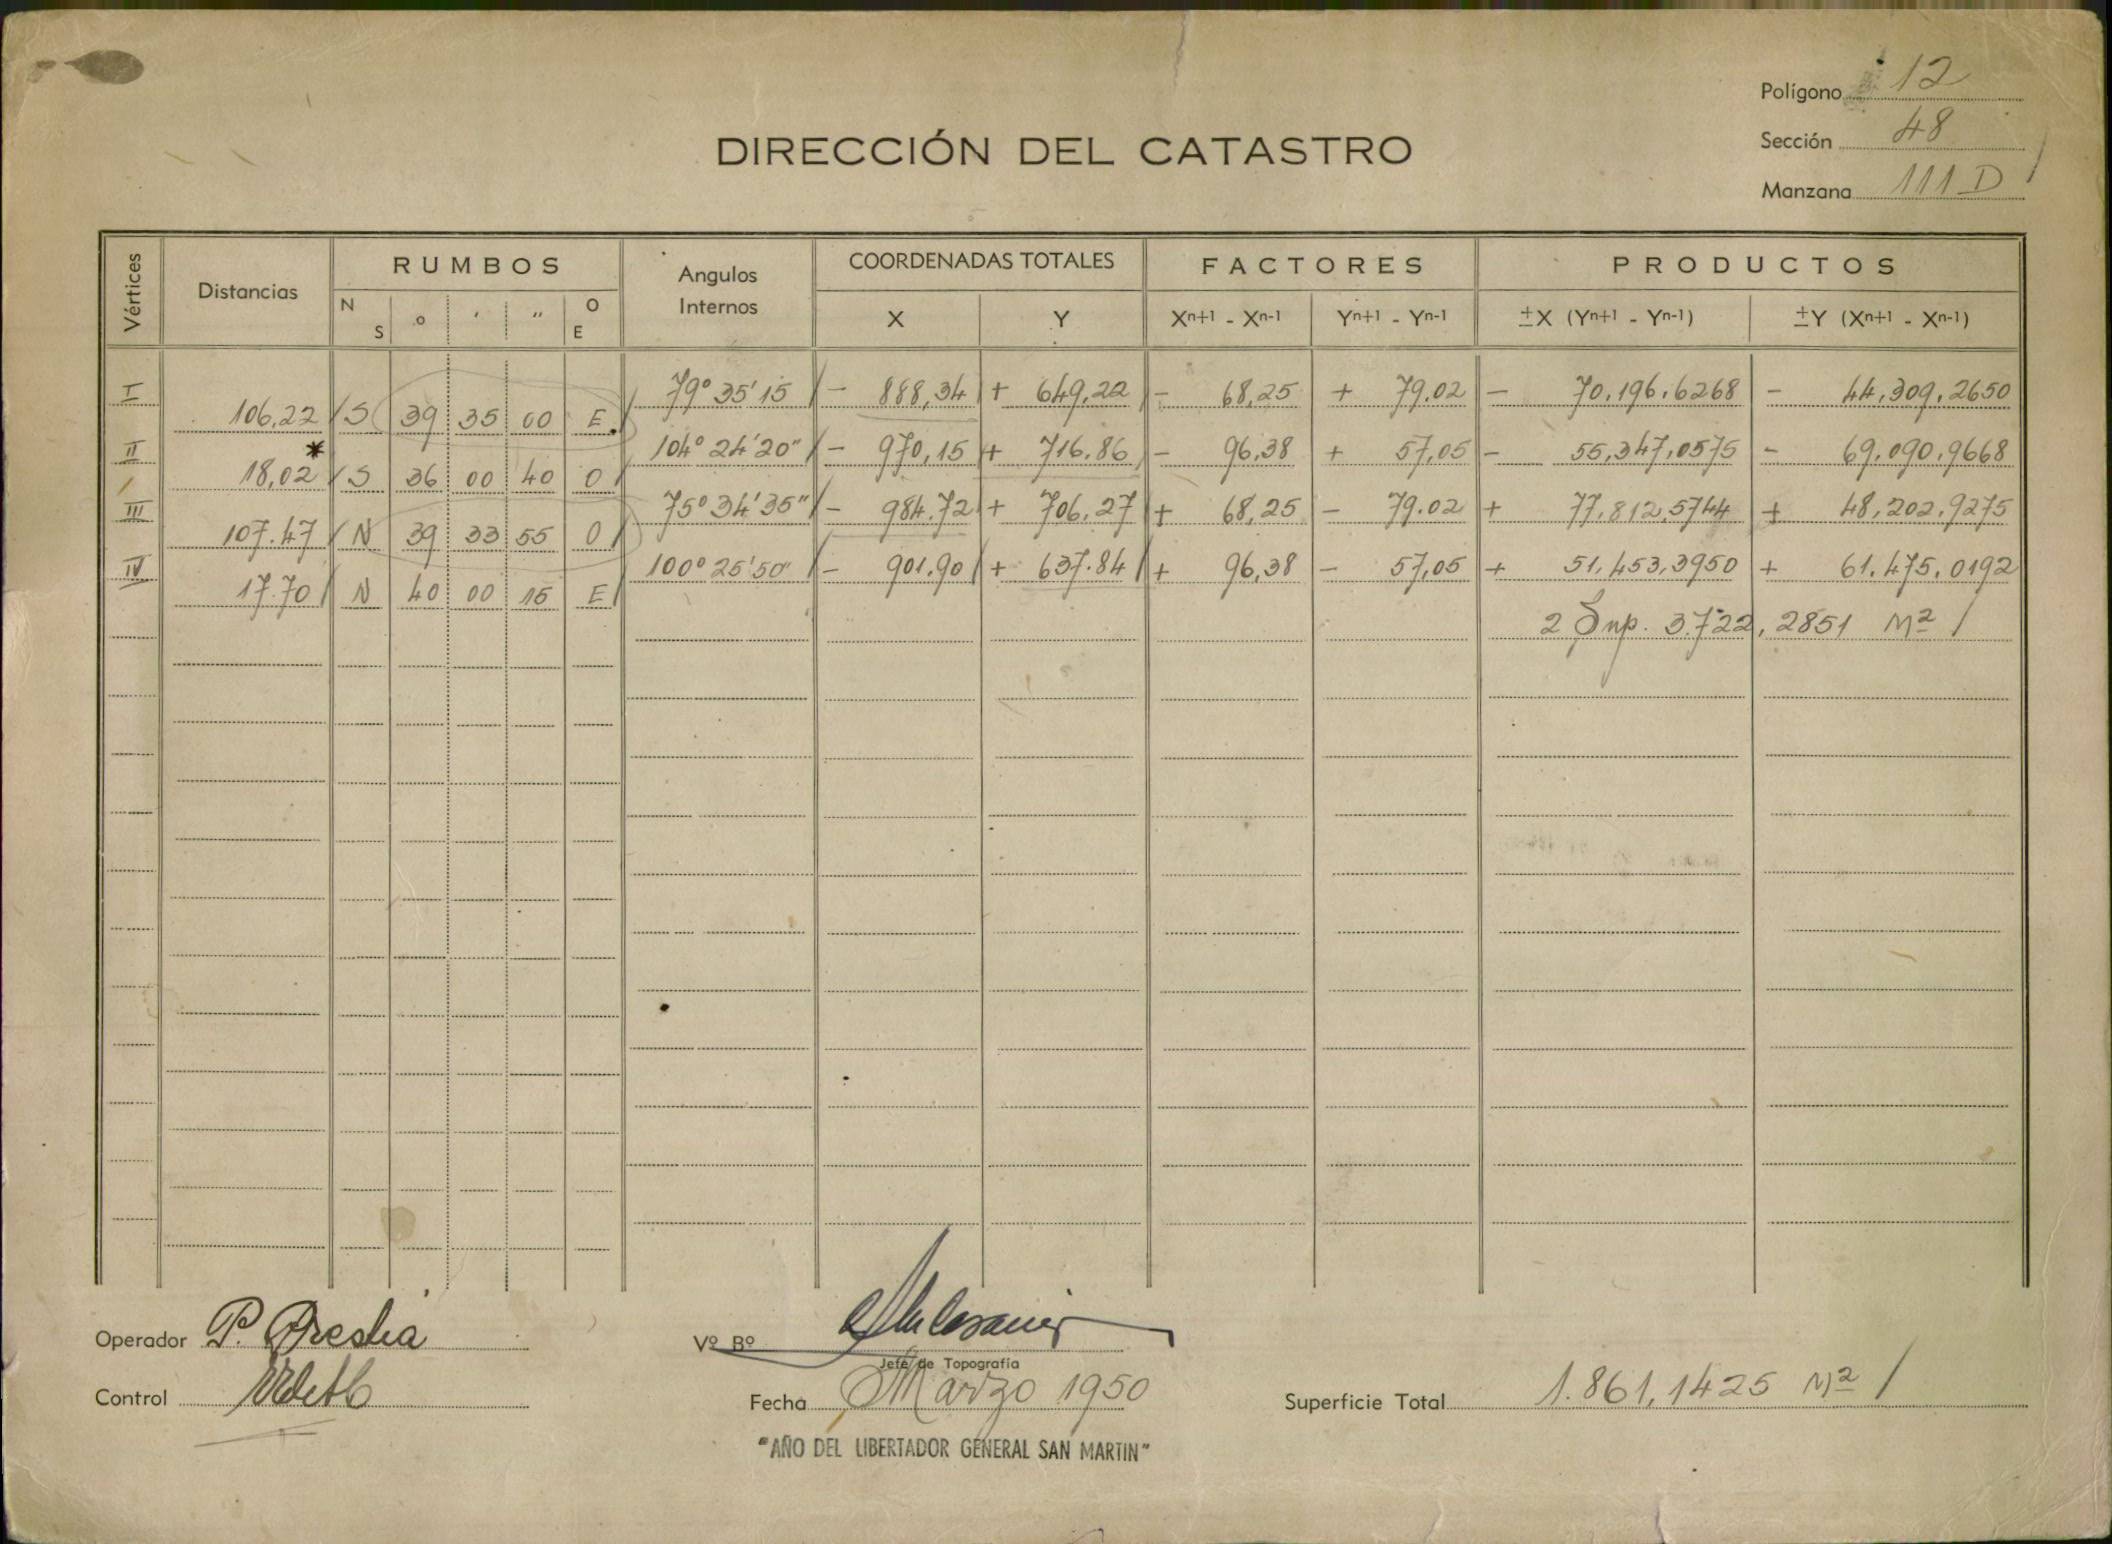 Polígono 12
Sección 48
Manzana 111 D
DIRECCIÓN DEL CATASTRO
Vértices Distancias RUMBOS Angulos Internos COORDENADAS TOTALES FACTORES PRODUCTOS
N S o ' '' O E X Y Xn+1 - Xn-1 Yn+1 - Yn-1 ±X (Yn+1 - Yn-1) ±Y (Xn+1 - Xn-1)
I 79° 35' 15 - 888,34 + 649,22 - 68,25 + 79,02 - 70,196,6268 - 44,309,2650
106,22 S 39 35 00 E
II 104° 24' 20" - 970,15 + 716,86 - 96,38 + 57,05 - 55,347,0575 - 69,090,9668
18,02 S 36 00 40 O
III 75° 34' 35" - 984.72 + 706,27 + 68,25 - 79.02 + 77,812,5744 + 48,202,9275
107.47 N 39 33 55 O
IV 100° 25' 50" - 901.90 + 637.84 + 96,38 - 57,05 + 51,453,3950 + 61.475,0192
17.70 N 40 00 15 E
2 Sup. 3.722, 2851 M²
Operador P. Prestia
Vº Bº
Jefe de Topografía
Control
Fecha Marzo 1950
Superficie Total 1.861,1425 M²
"AÑO DEL LIBERTADOR GENERAL SAN MARTIN"